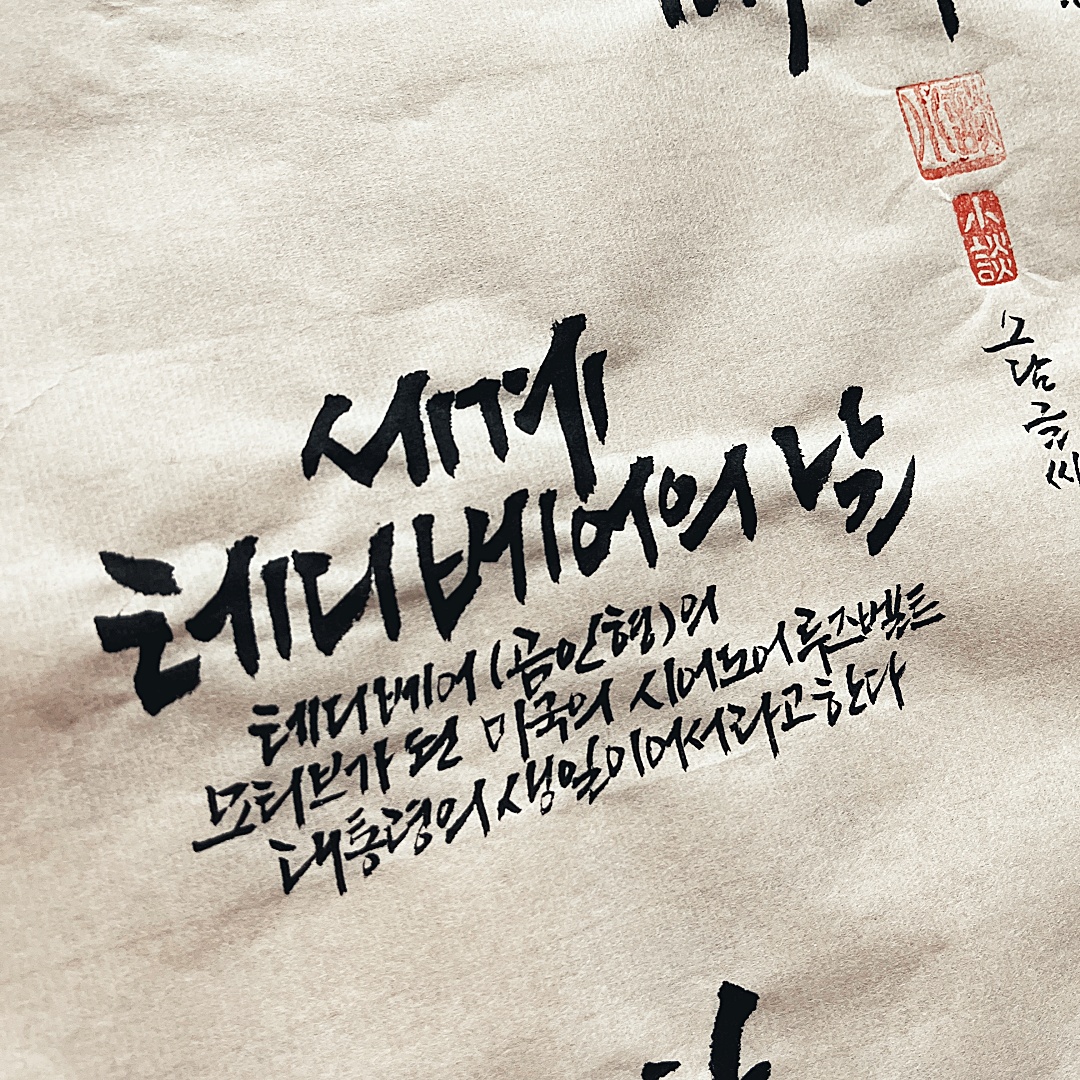 小談
담
글
씨
세계
테디베어의 날
테디베어(곰인형)의
모티브가 된 미국의 시어도어루즈벨트
대통령의 생일이어서라고한다